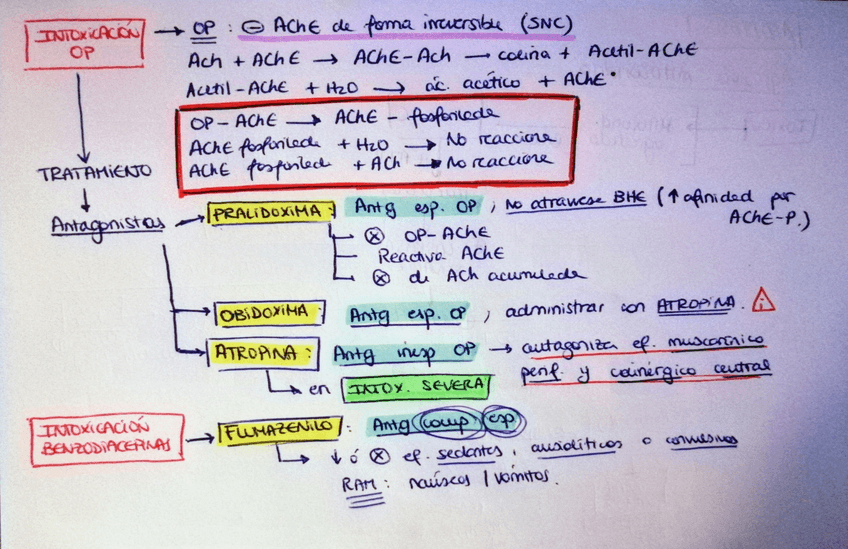 INTOXICACIÓN OP → OP : ⊖ AChE de forma irreversible (SNC)
Ach + AChE → AChE-Ach → colina + Acetil-AChE
Acetil-AChE + H2O → ác. acético + AChE
OP-AChE → AChE - fosforilada
AChE fosforilada + H2O → No reacciona
AChE fosforilada + ACh → No reacciona
TRATAMIENTO
Antagonistas
PRALIDOXIMA: Antg esp. OP ; no atraviesa BHE (↑ afinidad por AChE-P.)
ⓧ OP-AChE
Reactiva AChE
ⓧ de ACh acumulada
OBIDOXIMA: Antg esp. OP ; administrar con ATROPINA.
ATROPINA: Antg inesp OP → antagoniza ef. muscarínico
perif. y colinérgico central
en INTOX. SEVERA
INTOXICACIÓN BENZODIACEPINAS → FLUMAZENILO: Antg comp esp
↓ ó ⓧ ef. sedantes, ansiolíticos o convulsivos
RAM: naúseas / vómitos.